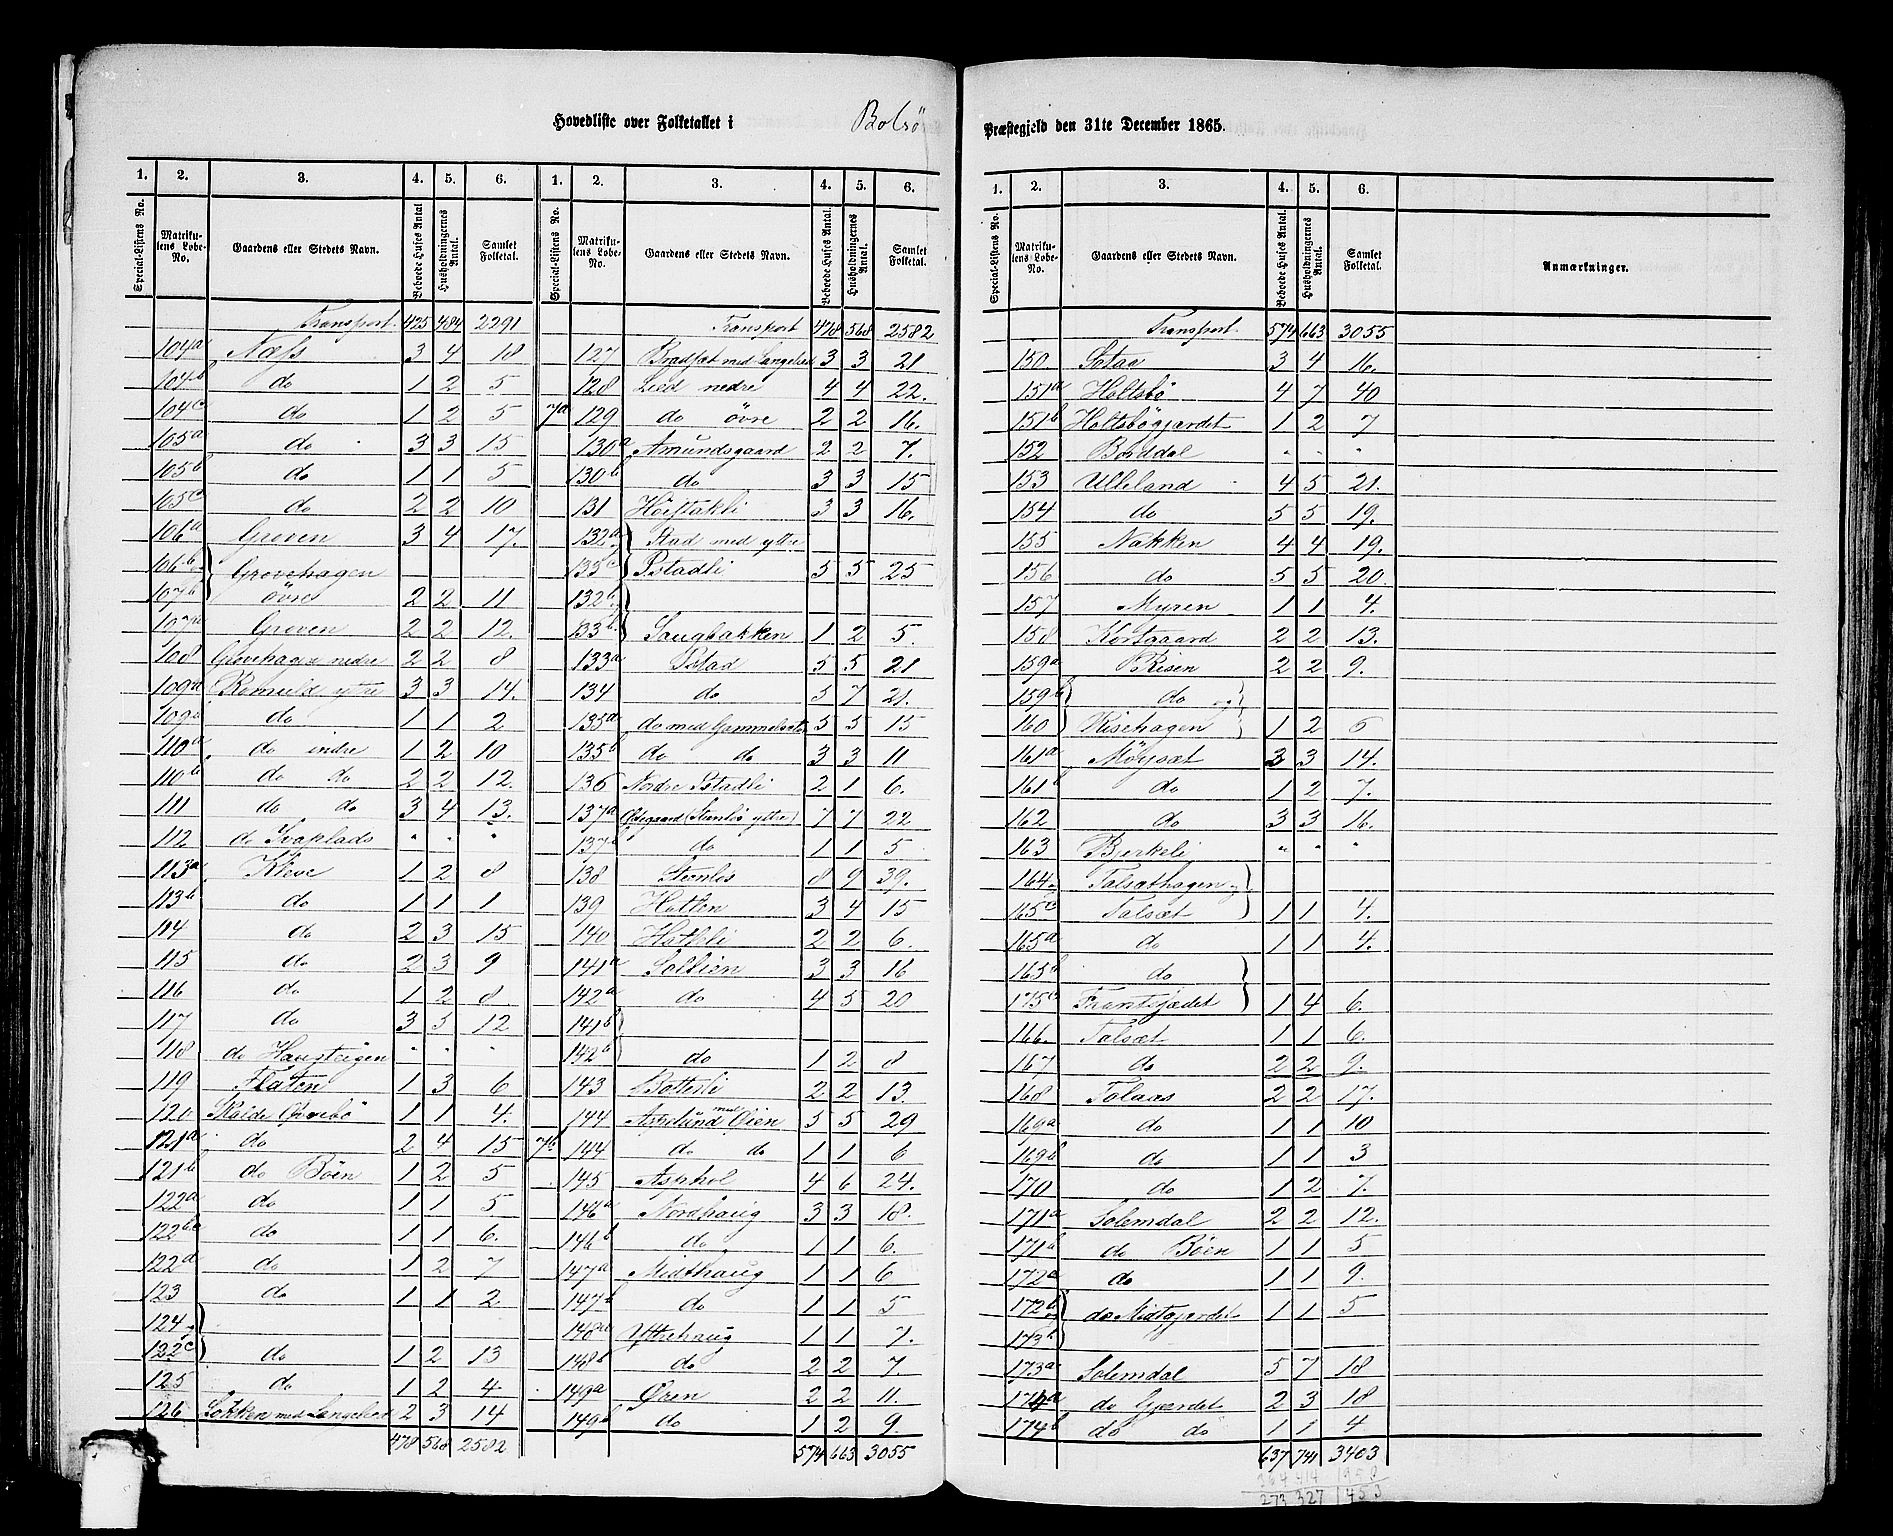 Hovedliste over Folketallet i Bolsö Præstegjeld den 31te December 1865.
1. 2. 3. 4. 5. 6. 1. 2. 3. 4. 5. 6.
Special-Listens No. Matrikulens Løbe-No. Gaardens eller Stedets Navn. Beboede Huses Antal Husholdningernes Antal. Samlet Folketal. Special-Listens No. Matrikulens Løbe-No. Gaardens eller Stedets Navn. Beboede Huses Antal. Husholdningernes Antal. Samlet Folketal.
Transport. 425 484 2291
104a Næss 3 4 18
104b do 1 2 5
104c do 1 2 5
105a do 3 3 15
105b do 1 1 5
105c do 2 2 10
106a Groven 3 4 17.
106b
107b Grovehagen øvre 2 2 11
107a Groven 2 2 12.
108 Grovehagen nedre 2 2 8
109a Romuld ytre 3 3 14.
109b do 1 1 2
110a do indre 1 2 10
110b do do 2 2 12.
111 do do 3 4 13.
112 do " " "
113a Kleve 1 2 8
113b do 1 1 1
114 do 2 3 15
115 do 2 3 9
116 do 1 2 8
117 do 3 3 12
118 do Haugteigen " " "
119 Flaten 1 3 6
120 Skalde 1 1 4.
121a do 2 4 15
121b do Böen 1 2 5
122a do 1 1 5
122b do 1 1 6.
122d do 1 2 7
123 do 1 1 2
124 og
122c do 1 2 13
125 do 1 2 4
126 Lökken med Langelied 2 3 14
478 568 2582
Transport 478 568 2582
127 Bradsæt med Langelied 3 3 21
128 Lied nedre 4 4 22.
7a 129 do övre 2 2 16.
130a Amundsgaard 2 2 7.
130b do 3 3 15
131 Höistakli 3 3 16.
132a Stad med ytre
133c Pstadli 5 5 25
132b
133b Saugbakken 1 2 5.
133a Pstad 5 5 21
134 do 5 7 21.
135a do med 5 5 15
135b do do 3 3 11
136 Nordre Pstadli 2 1 6.
137a Ødegaard (Stenlös ytre) 7 7 22
137b do 1 1 5
138 Stenlös 8 9 39.
139 Hatten 3 4 15
140 Hatleli 2 2 6.
141a Soltien 3 3 16
142a do 4 5 20
141b
142b do 1 2 8
143 Botterli 2 2 13.
144 Aspelund med Öien 5 5 29
7b 144 do do 1 1 6
145 Asphol 4 6 24.
146a Nordhaug 3 3 18.
146b do 1 1 6.
147a Midthaug 1 1 6
147b do 1 1 5
148a Yttrehaug 1 1 7.
148b do 2 2 7.
149a Ören 2 2 11.
149b do 1 2 9.
574 663 3055
1. 2. 3. 4. 5. 6.
Special-Listens No. Matrikulens Løbe-No. Gaardens eller Stedets Navn. Beboede Huses Antal. Husholdningernes Antal. Samlet Folketal. Anmærkninger.
Transport. 574 663 3055
150. 3 4 16.
151a Holtsbö 4 7 40
151b Holtsbögjærdet 1 2 7
152 Borddal " " "
153 Ulleland 4 5 21.
154 do 5 5 19.
155 Nakken 4 4 19.
156 do 5 5 20.
157 Myren 1 1 4.
158 Kortgaard 2 2 13.
159a Risen 2 2 9.
159b do og
160 Risehagen 1 2 6
161a Möysæt 3 3 14.
161b do 1 2 7.
162 do 3 3 16.
163 Bjerkeli " " "
164 Talsæthagen og
165c Talsæt 1 1 4.
165a do 1 1 4.
165b do
175c 1 4 6.
166. Talsæt 1 1 6.
167 do 2 2 9.
168 Tolaas 2 2 17.
169a do 1 1 10
169b do 1 1 3
170 do 1 2 7.
171a Solemdal 2 2 12.
171b do Böen 1 1 5
172a do 1 1 9.
172b og do Midtgjerdet 1 1 5
173b
173a Solemdal 5 7 18
174a do Gjerdet 2 3 18
174b do do 1 1 4
637 741 3403
364 414 1950
273 327 1453